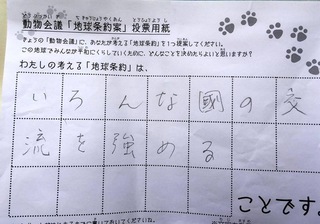 動物会議「地球条約案」投票用紙
きょうの「動物会議」に、あなたが考える「地球条約」を1つ提案してください。
この地球でみんなが平和にくらしていくために、どんなことを決めたらよいと思いますか？
わたしの考える「地球条約」は、
いろんな國の交
流を強める
ことです